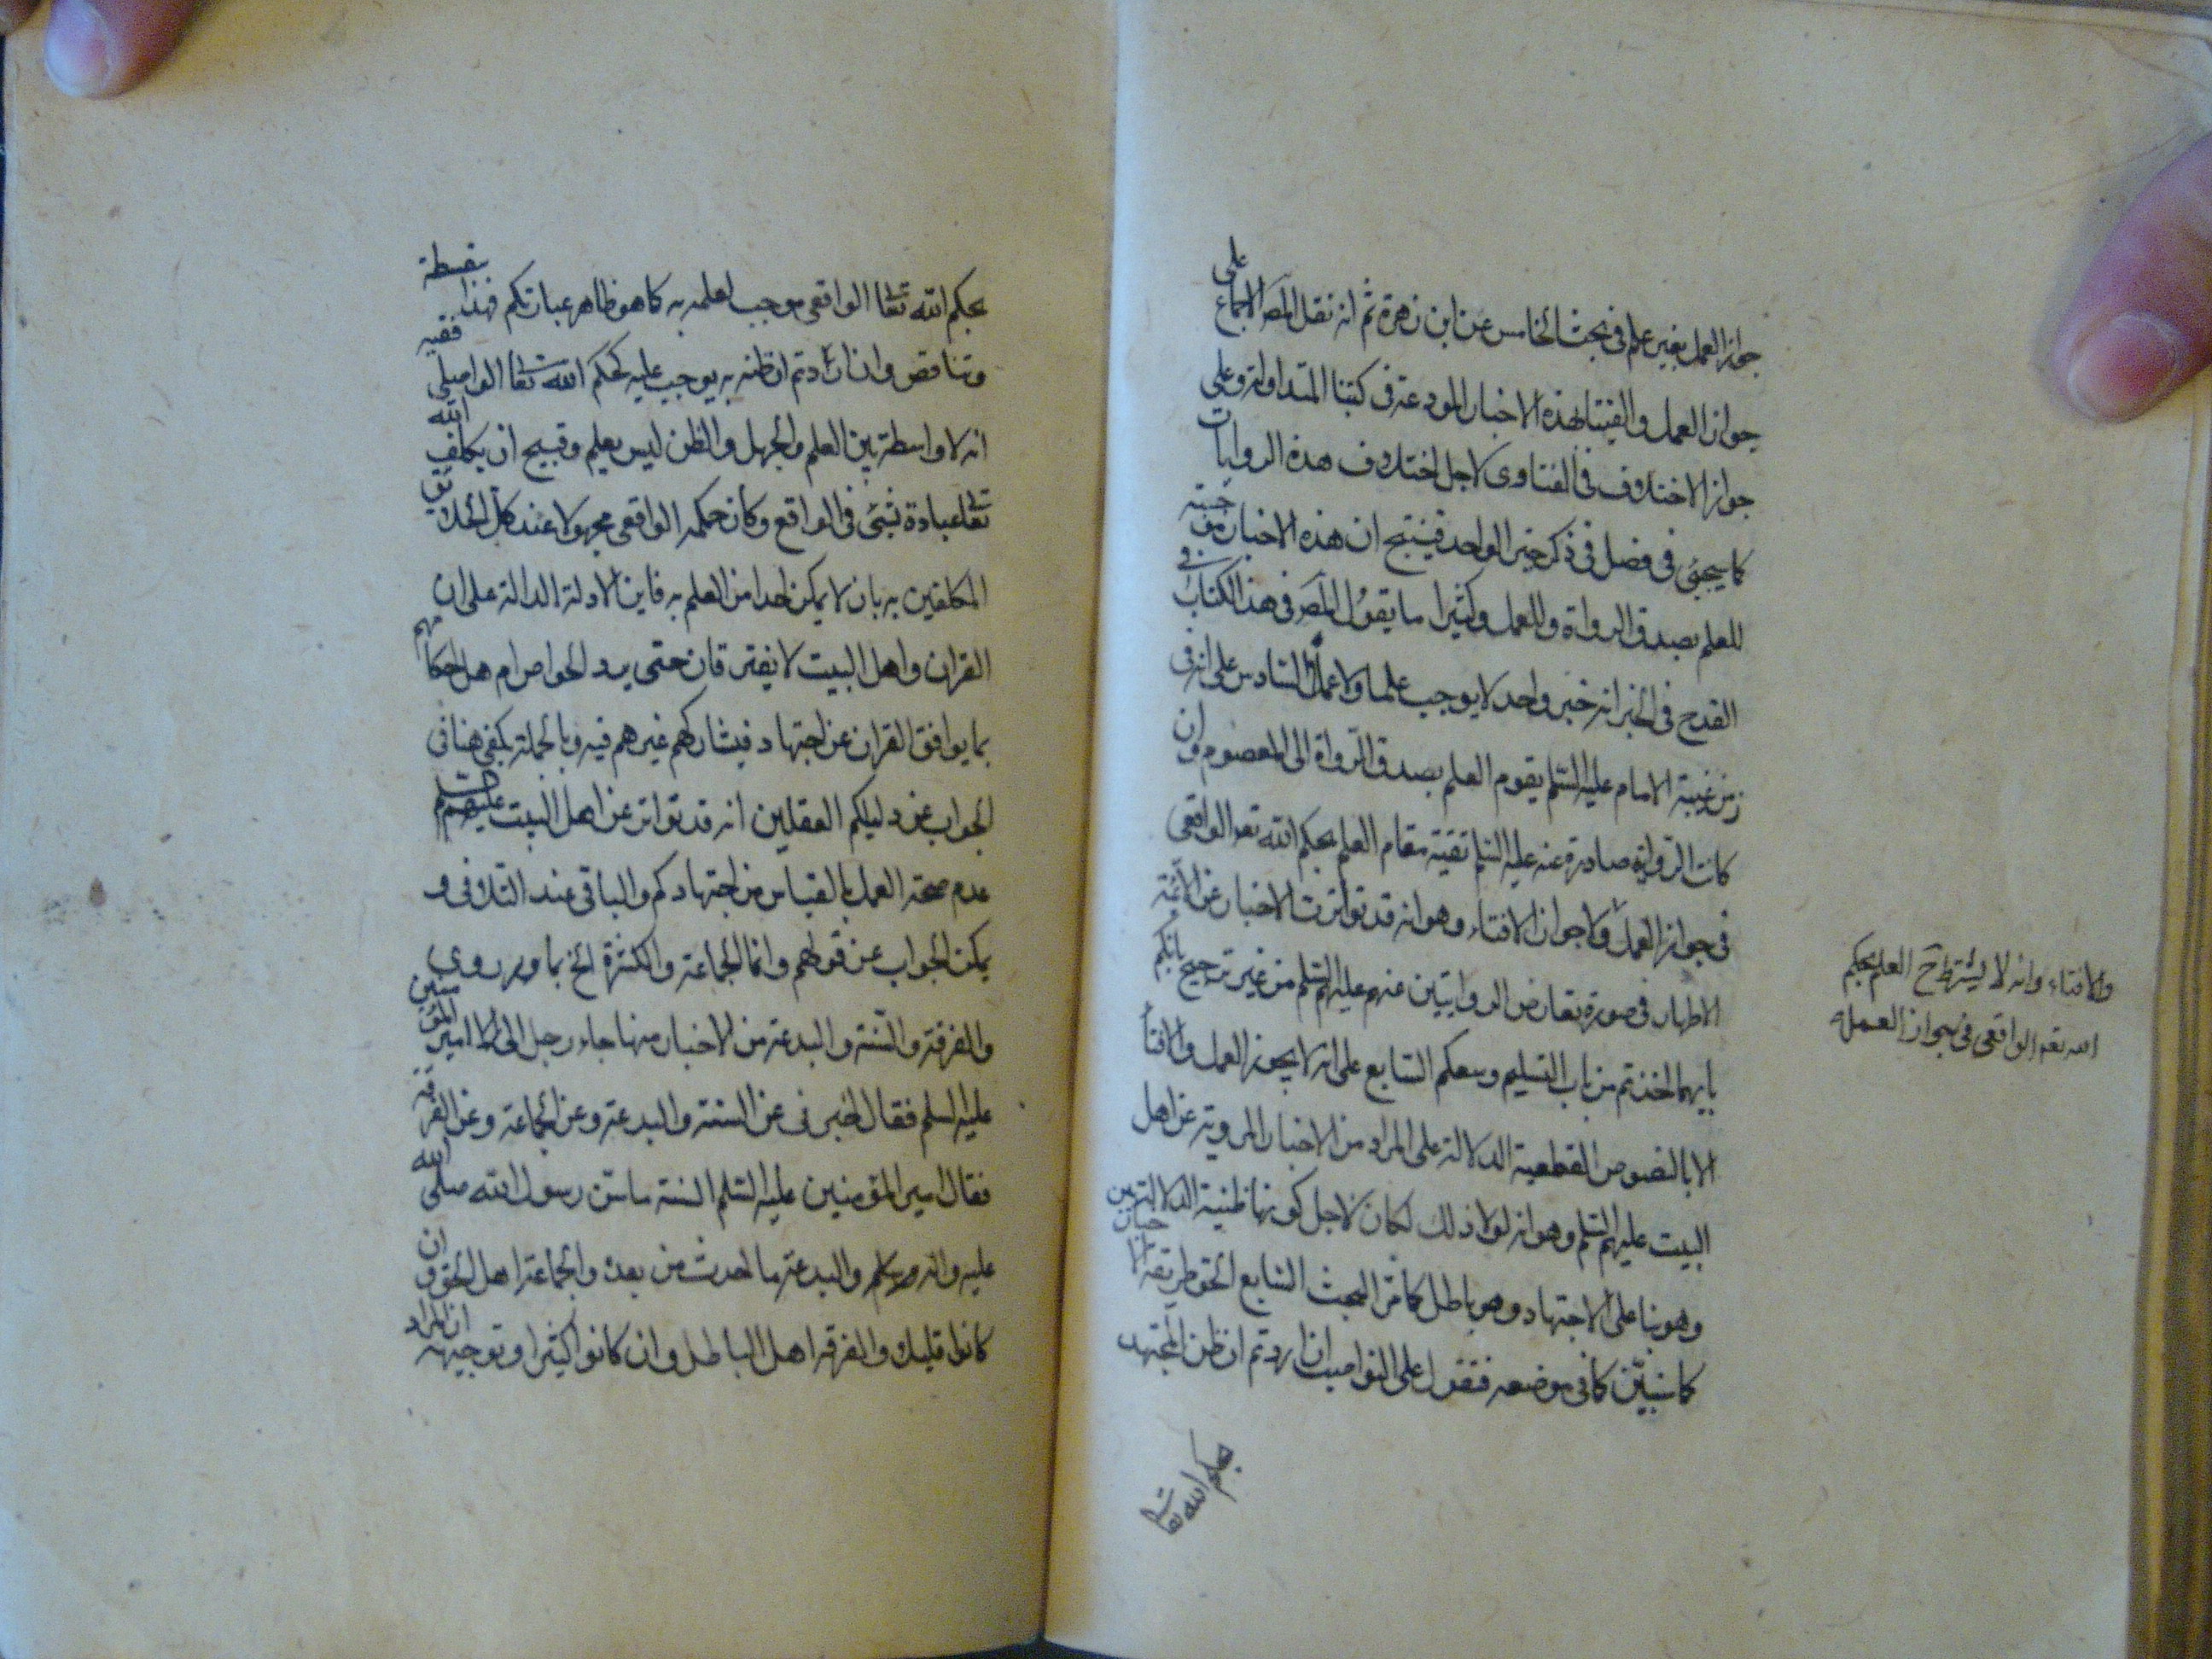 جواز العمل بغير علم في بحث الخامس عن ابن زهرة ثم انه نقل المص الاجماع على
جواز العمل والفتيا بهذه الاخبار المودعة في كتبنا المتداولة وعلى
جواز الاختلاف في الفتاوى لاجل اختلاف هذه الروايات
كما سيجئ في فصل في ذكر خبر الواحد فينتج ان هذه الاخبار
للعلم بصدق الرواة وللعمل وكثيرا ما يقول المص في هذا الكتاب في
القدح في الخبر انه خبر واحد لا يوجب علما ولا عملا السادس على انه في
زمن غيبة الامام عليه السلم يقوم العلم بصدق الرواة الى المعصوم وان
كانت الرواية صادرة عنه عليه السلم تقية مقام العلم بحكم الله تعو الواقعي
في جواز العمل ولا جواز الافتاء وهو انه قد تواترت الاخبار عن الائمة
الاطهار في صورة تعارض الروايتين عنهم عليهم السلم من غير ترجيح بانكم
بايهما اخذتم من باب التسليم وسعكم السابع على انه لا يجوز العمل والافتا
الا بالنصوص القطعية الدلالة على المراد من الاخبار المروية عن اهل
البيت عليهم السلم وهو انه لولا ذلك لكان لاجل كونها ظنية الدلالة
وهو بنا على الاجتهاد وهو باطل كما في المبحث السابع الحق طريقة
كما سنبين كما في موضعه فنقول على النواميس ان اردتم ان ظن المجتهد
بحكم الله تعا
والافتاء وانه لا يشترط ح العلم بحكم
الله تعو الواقعي في جواز العمل
بحكم الله تعا الواقعي موجب لعلمه به كما هو ظاهر عباراتكم فهذا سفسطة
وتناقض وان اردتم ان ظنه به يوجب عليه لحكم الله تعا الواصلي ففيه
انه لا واسطة بين العلم والجهل والظن ليس بعلم وقبيح ان يكلف الله
تعا عباده بشئ في الواقع وكان حكمه الواقعي مجهولا عند كل الخلايق
المكلفين به بان لا يمكن احدا من العلم به فاين الادلة الدالة على ان
القران واهل البيت لا يفترقان حتى يردا الحوض ام هل احكامهم
بما يوافق القران عن اجتهاد فيشاركهم غيرهم فيه وبالجملة يكفي هنا في
الجواب عن دليليكم العقليين انه قد تواتر عن اهل البيت عليهم السلم
عدم صحة العمل بالقياس من اجتهادكم والباقي عند التلافي و
يمكن الجواب عن قولهم وانما الجماعة والكثرة الخ بما ورد روي
والفرقة والسنة والبدعة من الاخبار منها جاء رجل الى امير المؤمنين
عليه السلم فقال اخبرني عن السنة والبدعة وعن الجماعة وعن الفرقة
فقال امير المؤمنين عليه السلم السنة ما سن رسول الله صلى الله
عليه واله وسلم والبدعة ما احدث من بعده والجماعة اهل الحق وان
كانوا قليلا والفرقة اهل الباطل وان كانوا كثيرا وتوجيهه ان المراد